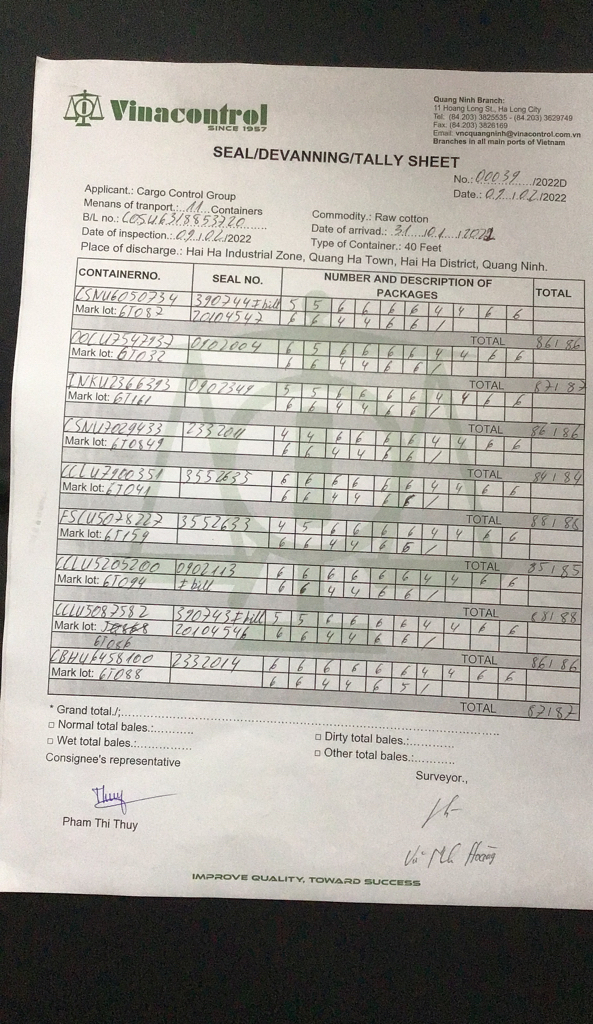 Vinacontrol
SINCE 1957
Quang Ninh Branch:
11 Hoang Long St., Ha Long City
Tel: (84.203) 3825535 - (84.203) 3629749
Fax: (84.203) 3826169
Email: vncquangninh@vinacontrol.com.vn
Branches in all main ports of Vietnam
SEAL/DEVANNING/TALLY SHEET
No.: 00039 /2022D
Date.: 09 / 02 /2022
Applicant.: Cargo Control Group
Menans of tranport.: 11 Containers
B/L no.: COSU6318853720
Date of inspection.: 09 / 02 /2022
Commodity.: Raw cotton
Date of arrival.: 31 / 01 / 2022
Type of Container.: 40 Feet
Place of discharge.: Hai Ha Industrial Zone, Quang Ha Town, Hai Ha District, Quang Ninh.
CONTAINERNO. SEAL NO. NUMBER AND DESCRIPTION OF PACKAGES TOTAL
CSNU6050734 390744 ≠ bill 5 5 6 6 6 6 4 4 6 6
Mark lot: 6T087 20104547 6 6 4 4 6 6 /
TOTAL 86 / 86
OOCU7542937 0902004 6 5 6 6 6 6 4 4 6 6
Mark lot: 6T032 6 6 4 4 6 6 /
TOTAL 87 / 87
0902349 5 5 6 6 6 6 4 4 6 6
Mark lot: 6T161 6 6 4 4 6 6 /
TOTAL 86 / 86
CSNU7029433 2332011 4 4 6 6 6 6 4 4 6 6
Mark lot: 6T0849 6 6 4 4 6 6 /
TOTAL 84 / 84
CCLU7900351 3552635 6 6 6 6 6 6 4 4 6 6
Mark lot: 6T041 6 6 4 4 6 6 /
TOTAL 88 / 88
FSCU5078227 3552633 4 5 6 6 6 6 4 4 6 6
Mark lot: 6T159 6 6 4 4 6 6 /
TOTAL 85 / 85
CCLU5205200 0902113 6 6 6 6 6 6 4 4 6 6
Mark lot: 6T094 ≠ bill 6 6 4 4 6 6 /
TOTAL 88 / 88
CCLU5087582 390743 ≠ bill 5 5 6 6 6 6 4 4 6 6
Mark lot: 20104546 6 6 4 4 6 6 /
6T086
TOTAL 86 / 86
CBHU6458100 2332014 6 6 6 6 6 6 4 4 6 6
Mark lot: 6T088 6 6 4 4 6 5 /
TOTAL 87 / 87
* Grand total./:
□ Normal total bales.:
□ Dirty total bales.:
□ Wet total bales.:
□ Other total bales.:
Consignee's representative
Surveyor.,
Thuy
Pham Thi Thuy
Hoàng
IMPROVE QUALITY, TOWARD SUCCESS